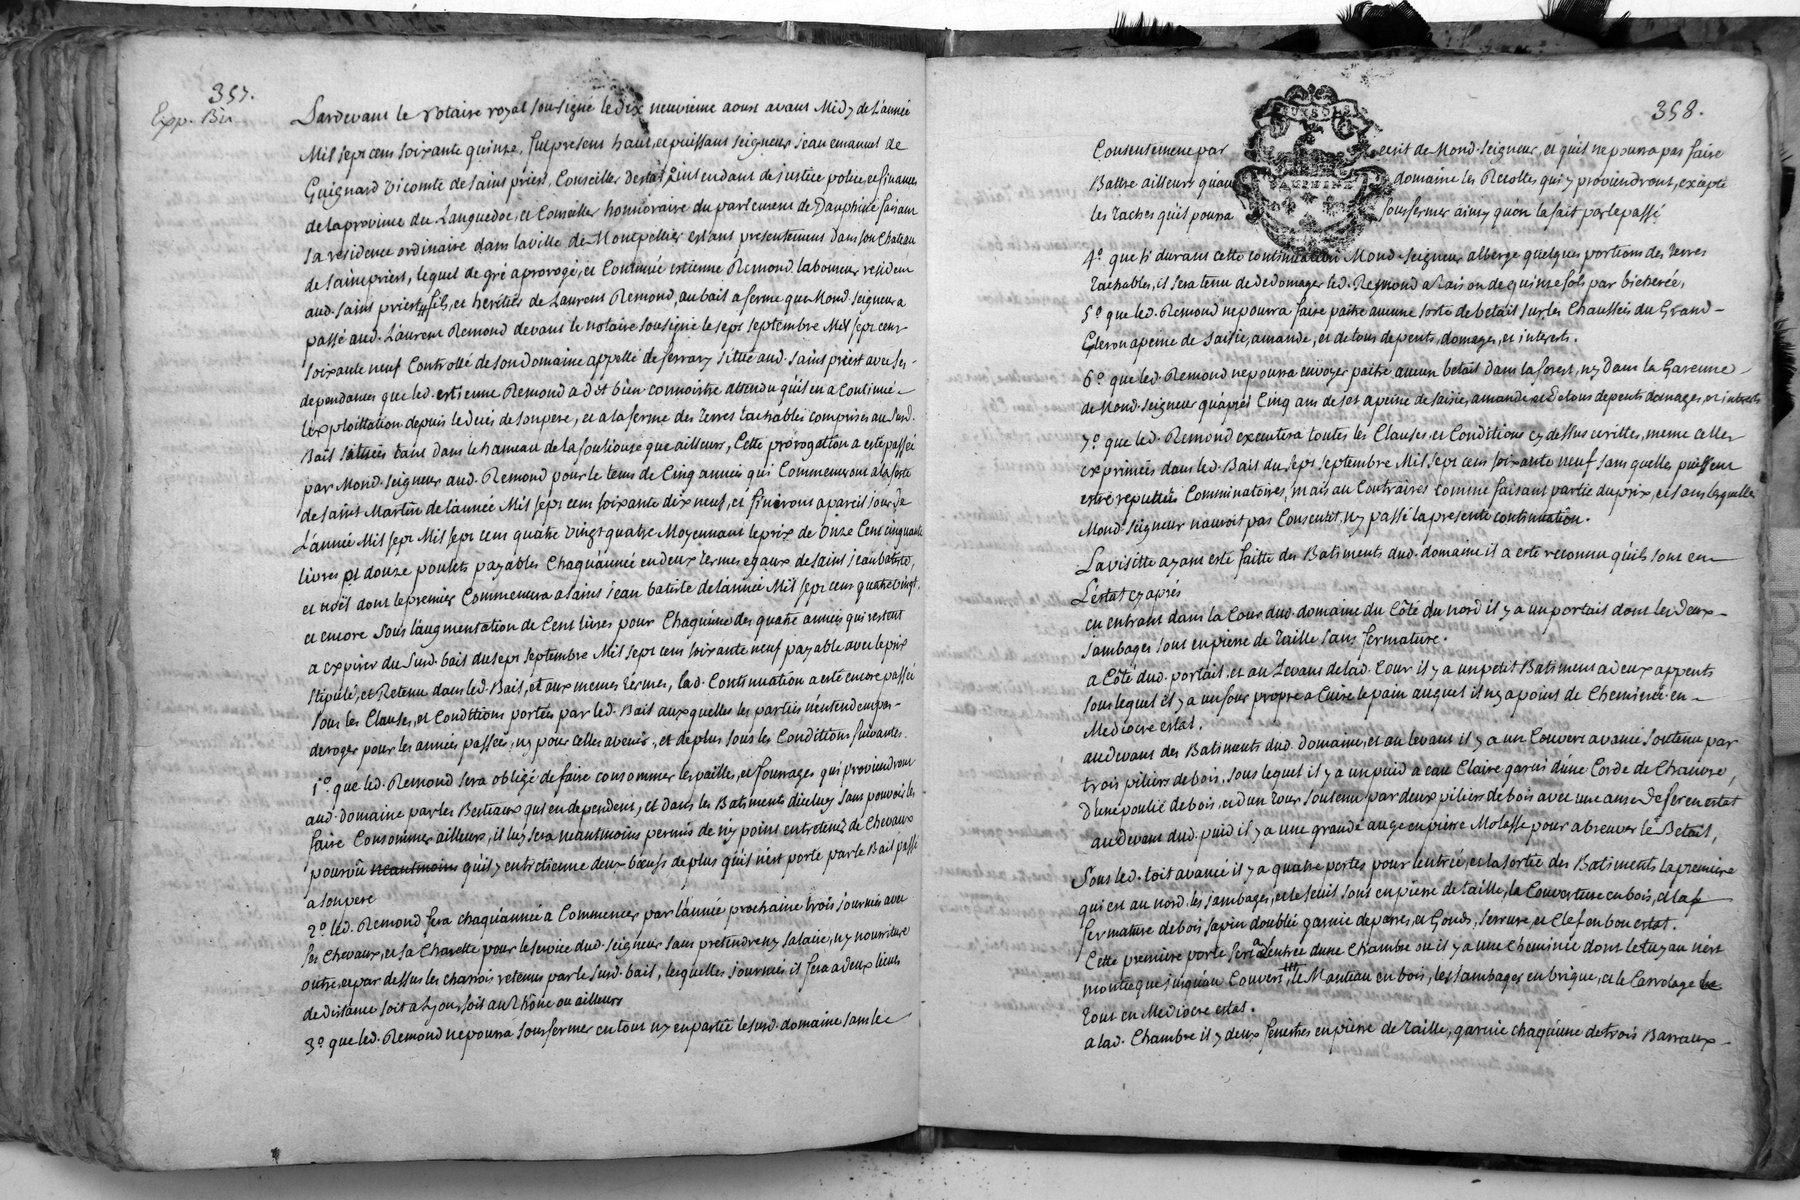 357.
Exp. Bu
Pardevant le Notaire royal sousigné le dix neuvieme aoust avant Midy de L'année
Mil sept cent soixante quinze, fut present haut, et puissant seigneur jean emanuel de
Guignard vicomte de saint priest, Conseiller d'estat, intendant de justice police, et finances
de la province du Languedoc, et Conseiller honnoraire du parlement de Dauphiné faisant
sa residence ordinaire dans la ville de Montpellier estant presentement dans son Chateau
de saint priest, lequel de gré a prorogé, et Continué estienne Remond laboureur resident
aud. saint priest fils, et heritier de Laurent Remond, au bail a ferme que Mond. seigneur a
passé aud. Laurent Remond devant le notaire sousigné le sept septembre Mil sept cent
soixante neuf Controllé de son domaine appellé de ferrary situé aud. saint priest avec ses
dependances que led. estienne Remond a dit bien connoistre attendu qu'il en a Continué
l'exploittation depuis le decés de son pere, et a la ferme des Terres tachables comprises au susd.
Bail situées tant dans le hameau de la fouliouse que ailleurs, Cette prorogation a esté passée
par Mond. seigneur aud. Remond pour le tems de Cinq années qui Commenceront a la feste
de saint Martin de l'année Mil sept cent soixante dix neuf, et finiront a pareil jour de
L'année Mil sept Mil sept cent quatre vingt quatre Moyennant le prix de Onze Cent cinquante
livres et douze poulets payables Chaqu'année en deux termes egaux de saint jean batiste,
et noël dont le premier Commencera a saint jean batiste de l'année Mil sept cent quatre vingt
et encore sous l'augmentation de Cent livres pour Chaqu'une des quatre années qui restent
a expirer du susd. bail du sept septembre Mil sept cent soixante neuf payable avec le prix
stipulé, et Retenu dans led. Bail, et aux memes termes, lad. Continuation a eté encore passée
sous les Clauses, et Conditions portées par led. Bail auxquelles les parties n'entendent pas
deroger pour les années passées, ny pour celles avenir, et de plus sous les Conditions suivantes.
1º que led. Remond sera obligé de faire consommer les pailles, et fourrages qui proviendront
aud. domaine par les Bestiaux qui en dependent, et dans les Batiments d'iceluy sans pouvoir les
faire Consommer ailleurs, il luy sera neantmoins permis de n'y point entretenir de Chevaux
pourvû neantmoins qu'il y entretienne deux bœufs de plus qu'il n'est porté par le Bail passé
a son pere
2º led. Remond fera chaqu'année a Commencer par l'année prochaine trois journées avec
ses Chevaux, et sa Charette pour le service dud. seigneur sans pretendre ny salaire, ny nourriture
outre, et par dessus les charrois retenus par le susd. bail, lesquelles journées il fera a deux lieues
de distance soit a Lyon, soit au Rhône ou ailleurs
3º que led. Remond ne pourra sousfermer en tout ny en partie le susd. domaine sans le
358.
DAUPHINÉ
Consentement par ecrit de Mond. seigneur, et qu'il ne pourra pas faire
Battre ailleurs qu'au domaine les Recoltes qui y proviendront, excepté
les Taches qu'il pourra sousfermer ainsy qu'on la fait par le passé
4º que si durant cette continuation Mond. seigneur alberge quelques portions des Terres
Tachables, il sera tenu de dedomager led. Remond a Raison de quinze sols par bicherée,
5º que led. Remond ne pourra faire paitre aucune sorte de betail sur les Chaussées du Grand
Gleron a peine de saisie, amande, et de tous depents, domages, et interests.
6º que led. Remond ne pourra envoyer paitre aucun betail dans la forest, ny dans la Garenne
de Mond. seigneur qu'aprés Cinq ans de sot a peine de saisie, amande et de tous depents domages, et interests
7º que led. Remond executera toutes les Clauses, et Conditions cy dessus ecrittes, meme celles
exprimées dans led. Bail du sept septembre Mil sept cent soixante neuf sans quelles puissent
estre reputées Comminatoires, mais au Contraires comme faisant partie du prix, et sans lesquelles
Mond. seigneur n'auroit pas Consentit, ny passé la presente continuation.
La visitte ayant esté faitte des Batiments dud. domaine il a esté reconnu qu'ils sont en
L'estat cy aprés
en entrant dans la Cour dud. domaine du Côté du nord il y a un portait dont les deux
jambages sont en pierre de Taille sans fermature.
a Côté dud. portait, et au Levant de lad. Cour il y a un petit Batiment a deux appents
sous lequel il y a un four propre a Cuire le pain auquel il n'y a point de Cheminée en
Mediocre estat.
au devant des Batiments dud. domaine, et au levant il y a un Couvert avancé soutenu par
trois piliers de bois, sous lequel il y a un puid a eau Claire garni d'une Corde de Chanvre,
d'une poulie de bois, et d'un tour soutenu par deux piliers de bois avec une anse de fer en estat
au devant dud. puid il y a une grande auge en pierre Molasse pour abreuver le Betail,
sous led. toit avancé il y a quatre portes pour l'entrée, et la sortie des Batiments la premiere
qui est au nord. les jambages, et le seuil sont en pierre de taille, la Couverture en bois, et la
fermature de bois sapin doublé garnie de parres, et Gonds, serrure, et Clef en bon estat.
Cette premiere porte sert a l'entrée d'une Chambre ou il y a une Cheminée dont le tuyau n'est
monté que jusqu'au Couvert, le Manteau en bois, les jambages en brique, et le Carrolage
tout en Mediocre estat.
a lad. Chambre il y deux fenestres en pierre de Taille, garnie chaqu'une de trois Barraux